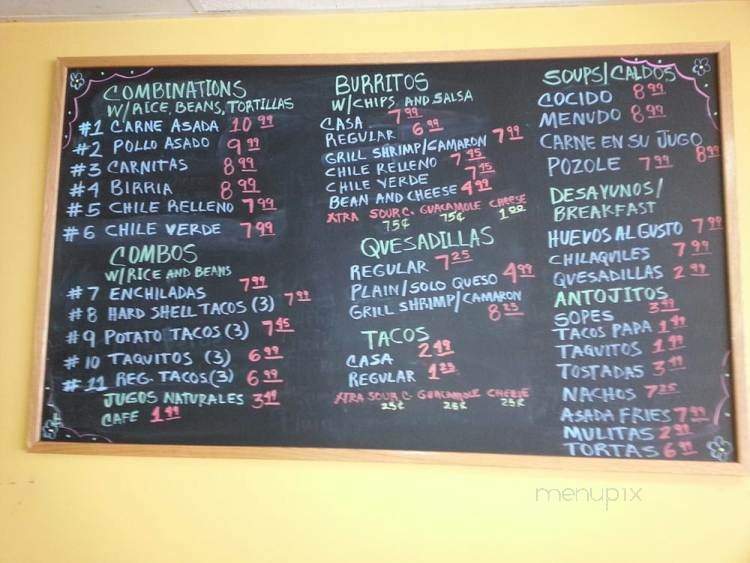 COMBINATIONS
W/RICE, BEANS, TORTILLAS
#1 CARNE ASADA 10 99
#2 POLLO ASADO 9 99
#3 CARNITAS 8 99
#4 BIRRIA 8 99
#5 CHILE RELLENO 7 99
#6 CHILE VERDE 7 99
COMBOS
W/RICE AND BEANS
#7 ENCHILADAS 7 99
#8 HARD SHELL TACOS (3) 7 99
#9 POTATO TACOS (3) 7 45
#10 TAQUITOS (3) 6 99
#11 REG. TACOS (3) 6 99
JUGOS NATURALES 3 49
CAFE 1 99
BURRITOS
W/CHIPS AND SALSA
CASA 7 99
REGULAR 6 99
GRILL SHRIMP/CAMARON 7 99
CHILE RELLENO 7 45
CHILE VERDE 7 45
BEAN AND CHEESE 4 99
XTRA SOUR C. GUACAMOLE CHEESE
75¢ 75¢ 1 00
QUESADILLAS
REGULAR 7 25
PLAIN/SOLO QUESO 4 99
GRILL SHRIMP/CAMARON
8 25
TACOS
CASA 2 49
REGULAR 1 25
XTRA SOUR C. GUACAMOLE CHEESE
25¢ 25¢ 25¢
SOUPS/CALDOS
COCIDO 8 99
MENUDO 8 99
CARNE EN SU JUGO
8 99
POZOLE 7 99
DESAYUNOS/
BREAKFAST
HUEVOS AL GUSTO 7 99
CHILAQUILES 7 99
QUESADILLAS 2 99
ANTOJITOS
SOPES 3 49
TACOS PAPA 1 49
TAQUITOS 1 49
TOSTADAS 3 49
NACHOS 7 25
ASADA FRIES 7 99
MULITAS 2 99
TORTAS 6 99
menupix